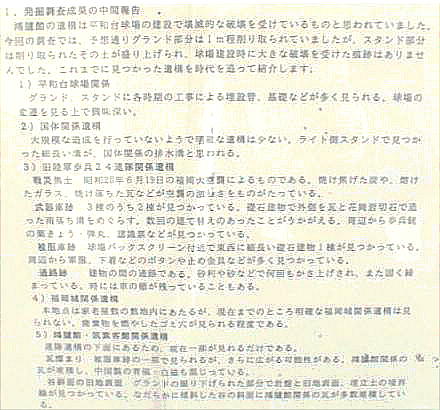 1．発掘調査成果の中間報告
鴻臚館の遺構は平和台球場の建設で壊滅的な破壊を受けているものと思われていました。
今回の調査では、予想通りグランド部分は1m程削り取られていましたが、スタンド部分
は削り取られたその土が盛り上げられ、球場建設時に大きな破壊を受けた痕跡はありませ
んでした。これまでに見つかった遺構を時代を追って紹介します；
1）平和台球場関係
グランド、スタンドに各時期の工事による埋設管、基礎などが多く見られる。球場の
変遷を見る上で興味深い。
2）国体関係遺構
大規模な造成を行っていないようで明確な遺構は少ない。ライト側スタンドで見つか
った細長い溝が、国体関係の排水溝と思われる。
3）旧陸軍歩兵24連隊関係遺構
戦災焦土 昭和20年6月19日の福岡大空襲によるものである。焼け焦げた炭や、熔け
たガラス、焼け落ちた瓦などが空襲の
武器庫跡 3棟のうち2棟が見つかっている。礎石建物で外側を瓦と花崗岩切石で造
った雨落ち溝をめぐらす。数回の建て替えのあったことがうかがえる。周辺から歩兵銃
の薬きょう・弾丸、認識票などが見つかっている。
被服庫跡 球場バックスクリーン付近で東西に細長い礎石建物1棟が見つかっている。
周辺から軍服、下着などのボタンや止め金具などが多く見つかっている。
通路跡 建物の間の通路である。砂利や砂などで何回もかさ上げされ、また固く締
まっている。時には車の轍が残っていることもある。
4）福岡城関係遺構
本地点は家老屋敷の敷地内にあたるが、現在までのところ明確な福岡城関係遺構は見
られない。廃棄物を燃やしたゴミ穴が見られる程度である。
5）鴻臚館・筑紫館関係遺構
連隊遺構の下面にあるため、現在一部が見えるだけである。
瓦溜まり 被服庫跡の一部で見られるが、さらに広がる可能性がある。鴻臚館関係の
瓦が堆積し、中国製の青磁・白磁も混じっている。
谷斜面の旧地表面 グランドの掘り下げられた部分で岩盤と旧地表面、埋立土の境界
線が見つかっている。なだらかに傾斜した谷の斜面に鴻臚館関係の瓦が多数堆積してい
る。